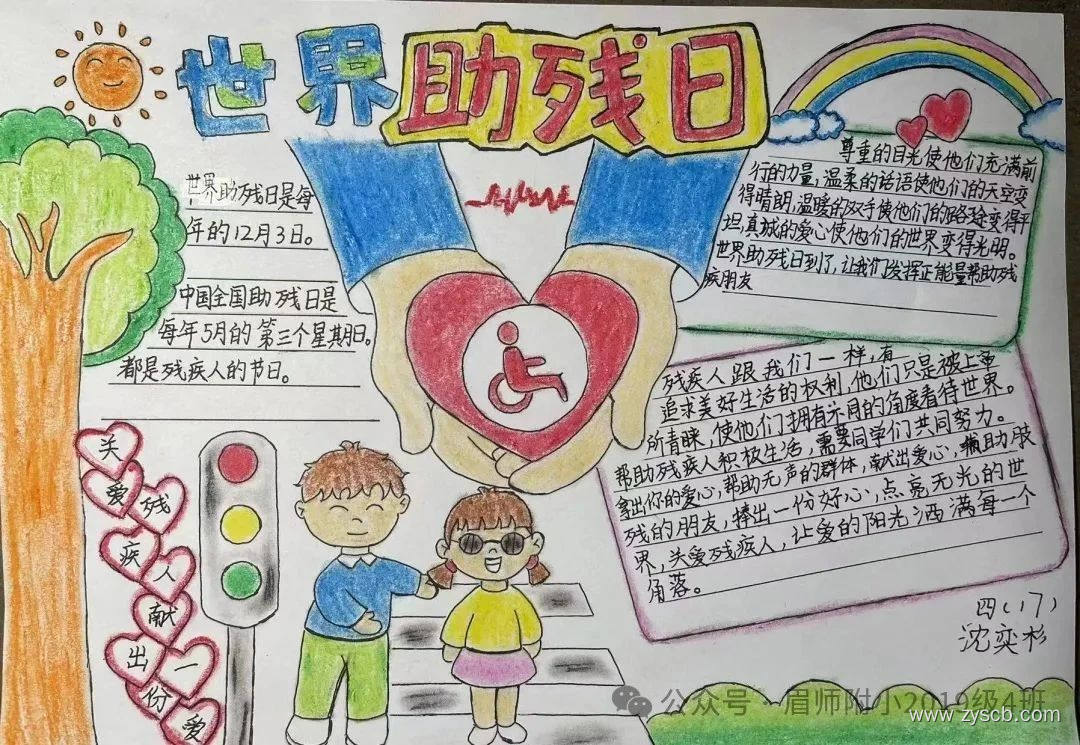 世界助残日
世界助残日是每
年的12月3日。
中国全国助残日是
每年5月的第三个星期日。
都是残疾人的节日。
尊重的目光使他们充满前
行的力量,温柔的话语使他们的天空变
得晴朗,温暖的双手使他们的路途变得平
坦,真诚的爱心使他们的世界变得光明。
世界助残日到了,让我们发挥正能量帮助残
疾朋友
残疾人跟我们一样,有
追求美好生活的权利,他们只是被上帝
所青睐,使他们拥有不同的角度看待世界。
帮助残疾人积极生活,需要同学们共同努力。
拿出你的爱心,帮助无声的群体,献出爱心,辅助肢
残的朋友,捧出一份好心,点亮无光的世
界,关爱残疾人,让爱的阳光洒满每一个
角落。
关
爱
残
疾
人
献
出
一
份
爱
四(17)
沈奕杉
公众号·眉师附小2019级4班
www.zyscb.com